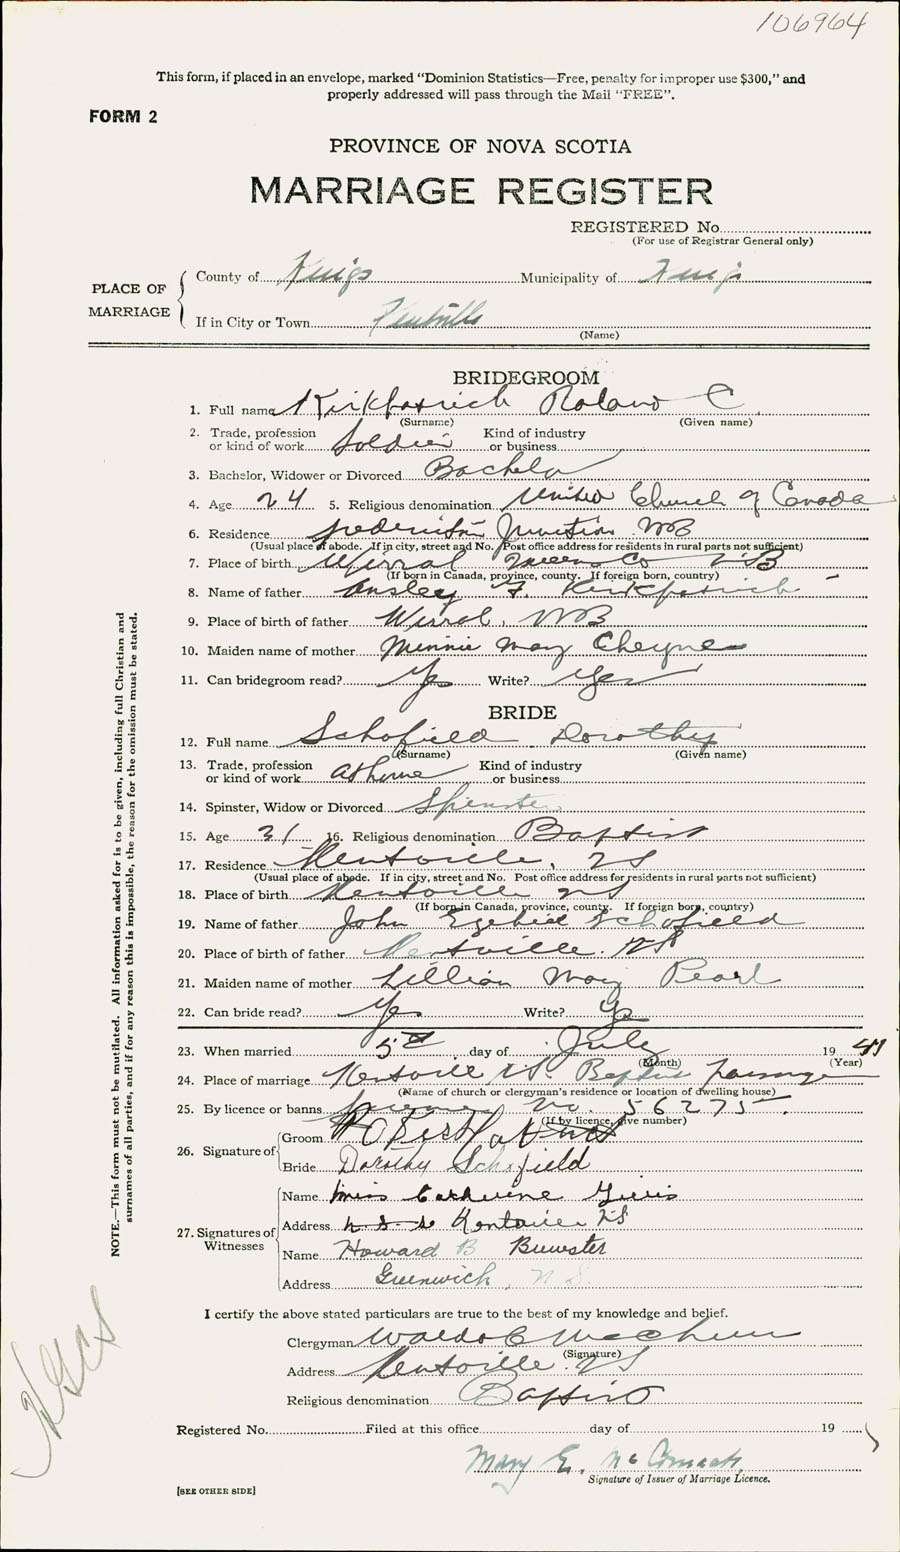 106964
This form, if placed in an envelope, marked “Dominion Statistics—Free, penalty for improper use $300,” and
properly addressed will pass through the Mail “FREE”.
FORM 2
PROVINCE OF NOVA SCOTIA
MARRIAGE REGISTER
REGISTERED No.
(For use of Registrar General only)
PLACE OF MARRIAGE
County of Kings Municipality of Kings
If in City or Town Kentville
(Name)
BRIDEGROOM
1. Full name Kirkpatrick Roland C.
(Surname) (Given name)
2. Trade, profession or kind of work Soldier Kind of industry or business
3. Bachelor, Widower or Divorced Bachelor
4. Age 24 5. Religious denomination United Church of Canada
6. Residence Fredericton Junction NB
(Usual place of abode. If in city, street and No. Post office address for residents in rural parts not sufficient)
7. Place of birth Wirral Queens Co NB
(If born in Canada, province, county. If foreign born, country)
8. Name of father Ansley F. Kirkpatrick
9. Place of birth of father Wirral, NB
10. Maiden name of mother Minnie May Cheyne
11. Can bridegroom read? Yes Write? Yes
BRIDE
12. Full name Schofield Dorothy
(Surname) (Given name)
13. Trade, profession or kind of work at home Kind of industry or business
14. Spinster, Widow or Divorced Spinster
15. Age 31 16. Religious denomination Baptist
17. Residence Kentville, NS
(Usual place of abode. If in city, street and No. Post office address for residents in rural parts not sufficient)
18. Place of birth Kentville NS
(If born in Canada, province, county. If foreign born, country)
19. Name of father John Ezekiel Schofield
20. Place of birth of father Kentville. NS
21. Maiden name of mother Lillian May Pearl
22. Can bride read? Yes Write? Yes
23. When married 5th day of July 1941
(Month) (Year)
24. Place of marriage Kentville NS. Baptist Parsonage
(Name of church or clergyman's residence or location of dwelling house)
25. By licence or banns No. 56275
(If by licence, give number)
26. Signature of
Groom
Bride Dorothy Schofield
27. Signatures of Witnesses
Name Miss Catherine
Address Kentville NS
Name Howard B Brewster
Address Greenwich, N.S.
I certify the above stated particulars are true to the best of my knowledge and belief.
Clergyman Waldo C
(Signature)
Address Kentville. NS
Religious denomination Baptist
Registered No. Filed at this office day of 19
Mary E. McCormack.
Signature of Issuer of Marriage Licence.
[SEE OTHER SIDE]
NOTE.—This form must not be mutilated. All information asked for is to be given, including full Christian and
surnames of all parties, and if for any reason this is impossible, the reason for the omission must be stated.